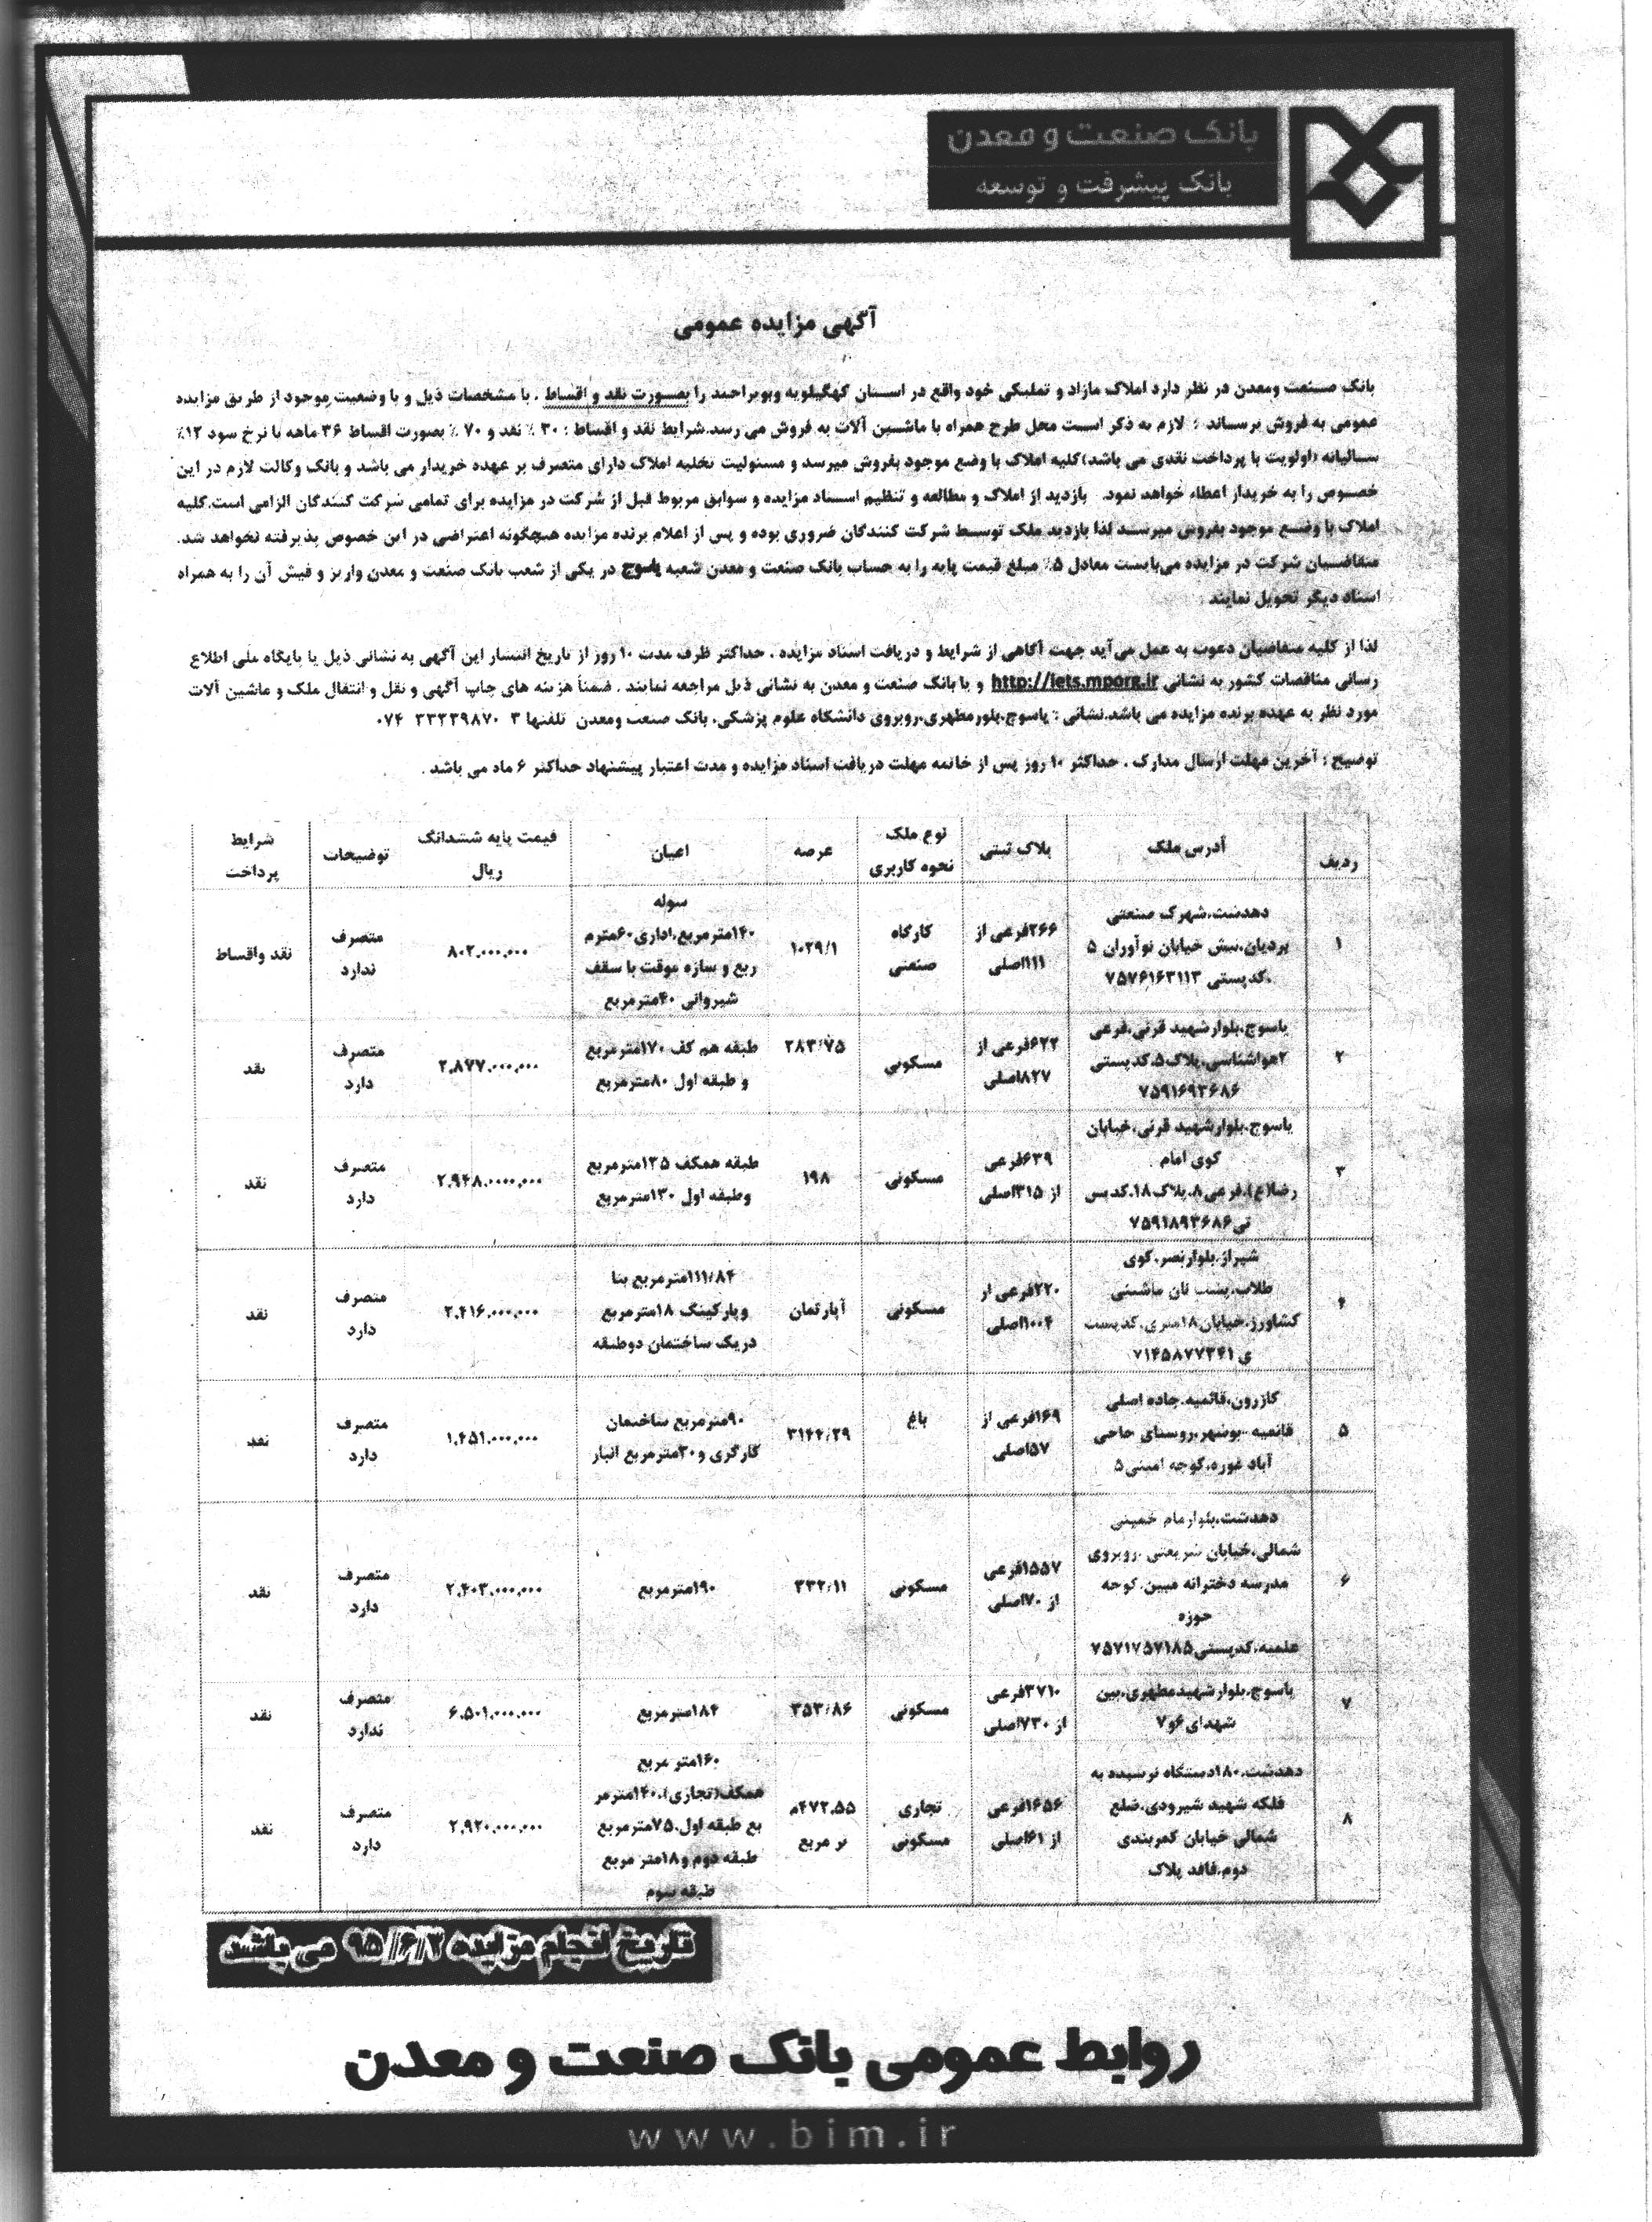 بانک صنعت و معدن
بانک پیشرفت و توسعه
آگهی مزایده عمومی
بانک صنعت ومعدن در نظر دارد املاک مازاد و تملیکی خود واقع در استان کهگیلویه وبویراحمد را بصورت نقد و اقساط ، با مشخصات ذیل و با وضعیت موجود از طریق مزایده
عمومی به فروش برساند : لازم به ذکر است محل طرح همراه با ماشین آلات به فروش می رسد.شرایط نقد و اقساط : ۳۰ ٪ نقد و ۷۰ ٪ بصورت اقساط ۳۶ ماهه با نرخ سود ۱۲٪
سالیانه (اولویت با پرداخت نقدی می باشد)کلیه املاک با وضع موجود بفروش میرسد و مسئولیت تخلیه املاک دارای متصرف بر عهده خریدار می باشد و بانک وکالت لازم در این
خصوص را به خریدار اعطاء خواهد نمود. بازدید از املاک و مطالعه و تنظیم اسناد مزایده و سوابق مربوط قبل از شرکت در مزایده برای تمامی شرکت کنندگان الزامی است.کلیه
املاک با وضع موجود بفروش میرسد لذا بازدید ملک توسط شرکت کنندگان ضروری بوده و پس از اعلام برنده مزایده هیچگونه اعتراضی در این خصوص پذیرفته نخواهد شد.
متقاضیان شرکت در مزایده می‌بایست معادل ۵٪ مبلغ قیمت پایه را به حساب بانک صنعت و معدن شعبه یاسوج در یکی از شعب بانک صنعت و معدن واریز و فیش آن را به همراه
اسناد دیگر تحویل نمایند .
لذا از کلیه متقاضیان دعوت به عمل می‌آید جهت آگاهی از شرایط و دریافت اسناد مزایده ، حداکثر ظرف مدت ۱۰ روز از تاریخ انتشار این آگهی به نشانی ذیل یا پایگاه ملی اطلاع
رسانی مناقصات کشور به نشانی http://iets.mporg.ir و یا بانک صنعت و معدن به نشانی ذیل مراجعه نمایند . ضمناً هزینه های چاپ آگهی و نقل و انتقال ملک و ماشین آلات
مورد نظر به عهده برنده مزایده می باشد.نشانی : یاسوج،بلورمطهری،روبروی دانشگاه علوم پزشکی، بانک صنعت ومعدن تلفنها ۳ ۳۳۳۳۹۸۷۰ ۰۷۴
توضیح : آخرین مهلت ارسال مدارک ، حداکثر ۱۰ روز پس از خاتمه مهلت دریافت اسناد مزایده و مدت اعتبار پیشنهاد حداکثر ۶ ماه می باشد .
ردیف آدرس ملک پلاک ثبتی نوع ملک نحوه کاربری عرصه اعیان قیمت پایه ششدانگ ریال توضیحات شرایط پرداخت
۱ دهدشت،شهرک صنعتی پردیان،نبش خیابان نوآوران ۵ ،کدپستی ۷۵۷۶۱۶۳۱۱۳ ۲۶۶فرعی از ۱۱۱اصلی کارگاه صنعتی ۱۰۲۹/۱ سوله ۱۴۰مترمربع،اداری۶۰مترم ربع و سازه موقت با سقف شیروانی ۴۰مترمربع ۸۰۲،۰۰۰،۰۰۰ متصرف ندارد نقد واقساط
۲ یاسوج،بلوارشهید قرنی،فرعی ۲هواشناسی،پلاک۵،کدپستی ۷۵۹۱۶۹۳۶۸۶ ۶۲۲فرعی از ۸۲۷اصلی مسکونی ۲۸۳/۷۵ طبقه هم کف ۱۷۰مترمربع و طبقه اول ۸۰مترمربع ۲،۸۷۷،۰۰۰،۰۰۰ متصرف دارد نقد
۳ یاسوج،بلوارشهید قرنی،خیابان کوی امام رضا(ع)،فرعی۸،پلاک۱۸،کدپس تی۷۵۹۱۸۹۳۶۸۶ ۶۳۹فرعی از ۳۱۵اصلی مسکونی ۱۹۸ طبقه همکف ۱۲۵مترمربع وطبقه اول ۱۳۰مترمربع ۲،۹۴۸،۰۰۰۰،۰۰۰ متصرف دارد نقد
۴ شیراز،بلوارنصر،کوی طلاب،پشت نان ماشینی کشاورز،خیابان۱۸متری،کدپست ی ۷۱۴۵۸۷۷۳۴۱ ۲۲۰فرعی از ۱۰۰۴اصلی مسکونی آپارتمان ۱۱۱/۸۴مترمربع بنا وپارکینگ ۱۸مترمربع دریک ساختمان دوطبقه ۲،۴۱۶،۰۰۰،۰۰۰ متصرف دارد نقد
۵ کازرون،قائمیه،جاده اصلی قائمیه -بوشهر،روستای حاجی آباد غوره،کوچه امینی۵ ۱۶۹فرعی از ۵۷اصلی باغ ۳۱۴۴/۲۹ ۹۰مترمربع ساختمان کارگری و۲۰مترمربع انبار ۱،۴۵۱،۰۰۰،۰۰۰ متصرف دارد نقد
۶ دهدشت،بلوارمام خمینی شمالی،خیابان شریعتی ،روبروی مدرسه دخترانه مبین،کوچه حوزه علمیه،کدپستی۷۵۷۱۷۵۷۱۸۵ ۱۵۵۷فرعی از ۷۰اصلی مسکونی ۳۳۲/۱۱ ۱۹۰مترمربع ۲،۴۰۳،۰۰۰،۰۰۰ متصرف دارد نقد
۷ یاسوج،بلوارشهیدمطهری،بین شهدای ۶و۷ ۳۷۱۰فرعی از ۷۳۰اصلی مسکونی ۳۵۳/۸۶ ۱۸۴مترمربع ۶،۵۰۱،۰۰۰،۰۰۰ متصرف ندارد نقد
۸ دهدشت،۱۸۰دستگاه نرسیده به فلکه شهید شیرودی،ضلع شمالی خیابان کمربندی دوم،فاقد پلاک ۱۶۵۶فرعی از ۶۱اصلی تجاری مسکونی ۴۷۲،۵۵م تر مربع ۱۶۰متر مربع همکف(تجاری)،۱۴۰مترمر بع طبقه اول،۷۵مترمربع طبقه دوم و۱۸متر مربع طبقه سوم ۲،۹۲۰،۰۰۰،۰۰۰ متصرف دارد نقد
تاریخ انجام مزایده ۹۵/۶/۳ می باشد
روابط عمومی بانک صنعت و معدن
www.bim.ir